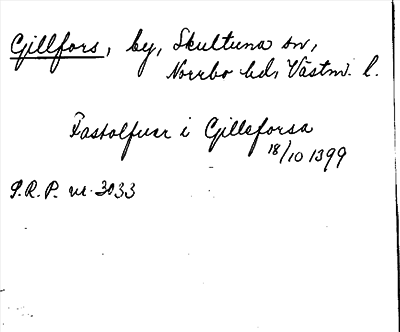 Gillfors, by, Skultuna sn,
Norrbo hd, Västm. l.
Fastolfuer i Gilleforsa
18/10 1399
S.R.P. nr. 3033